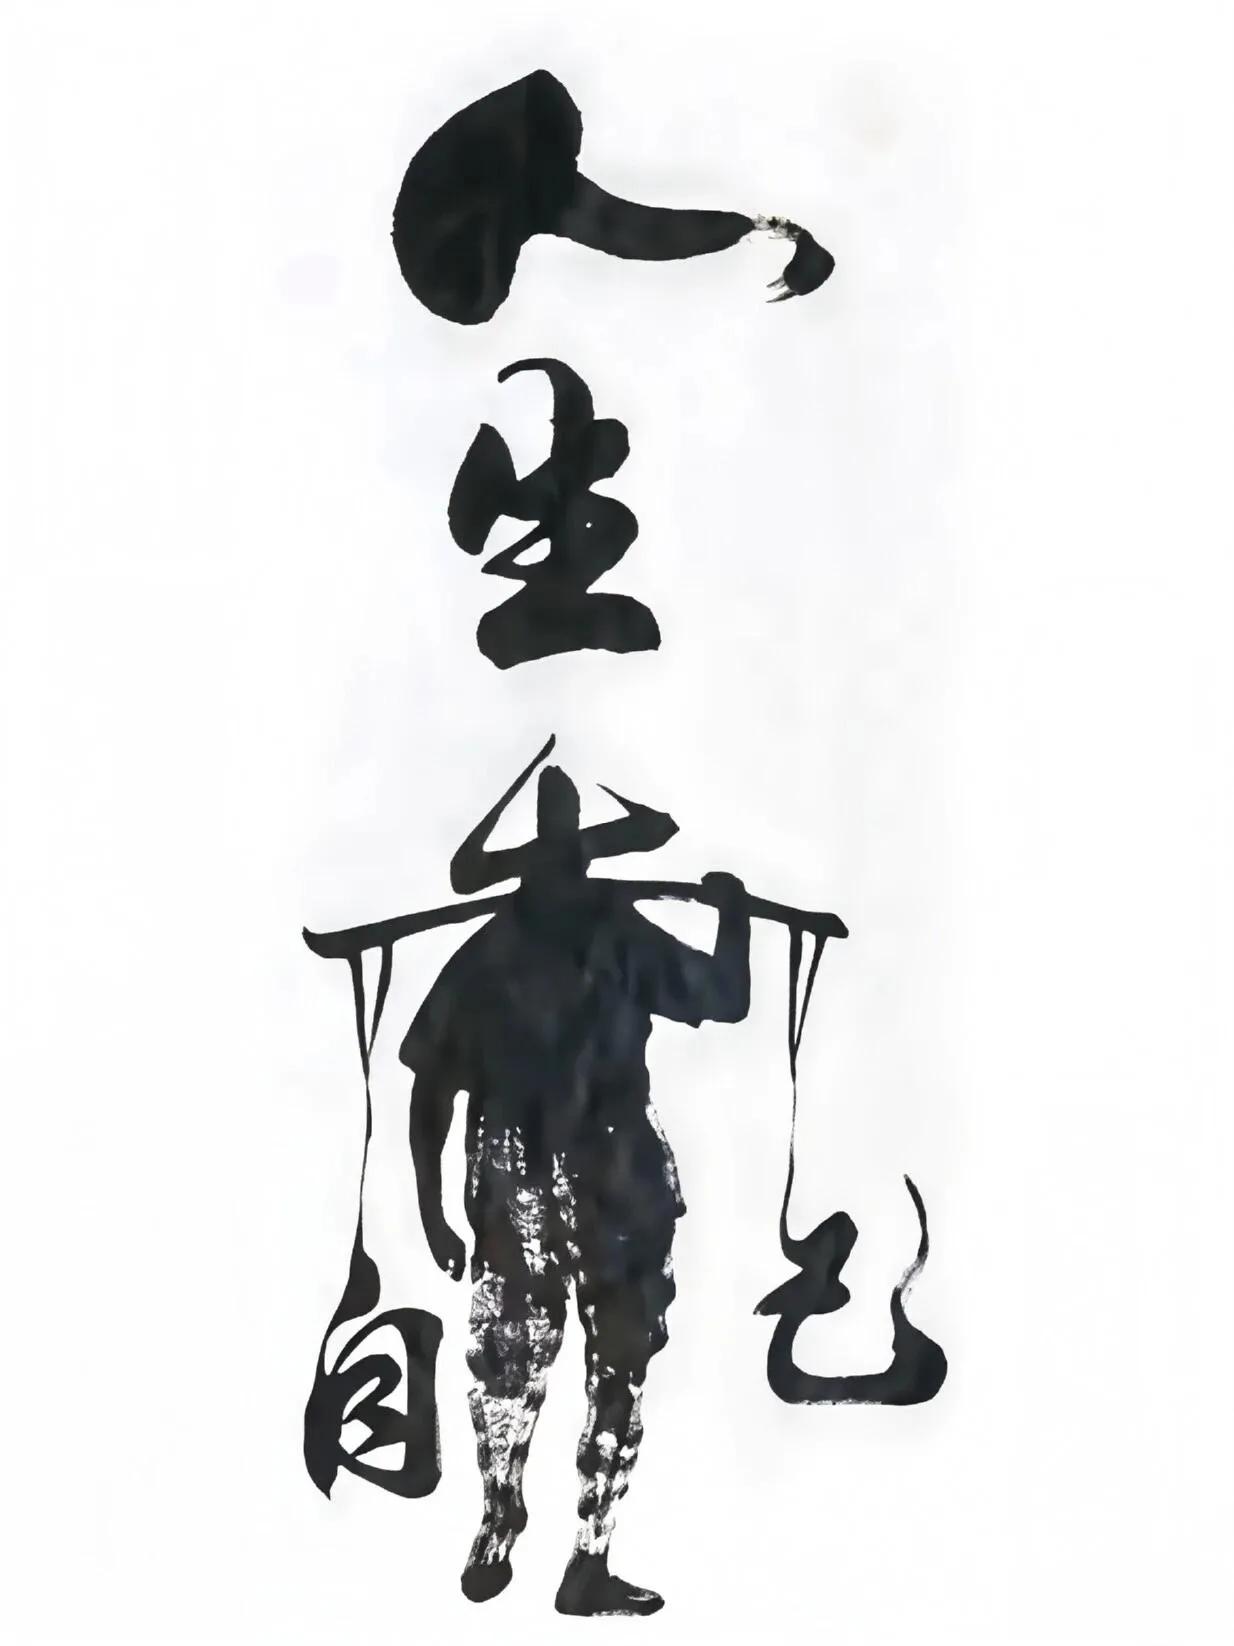 人生靠
自己